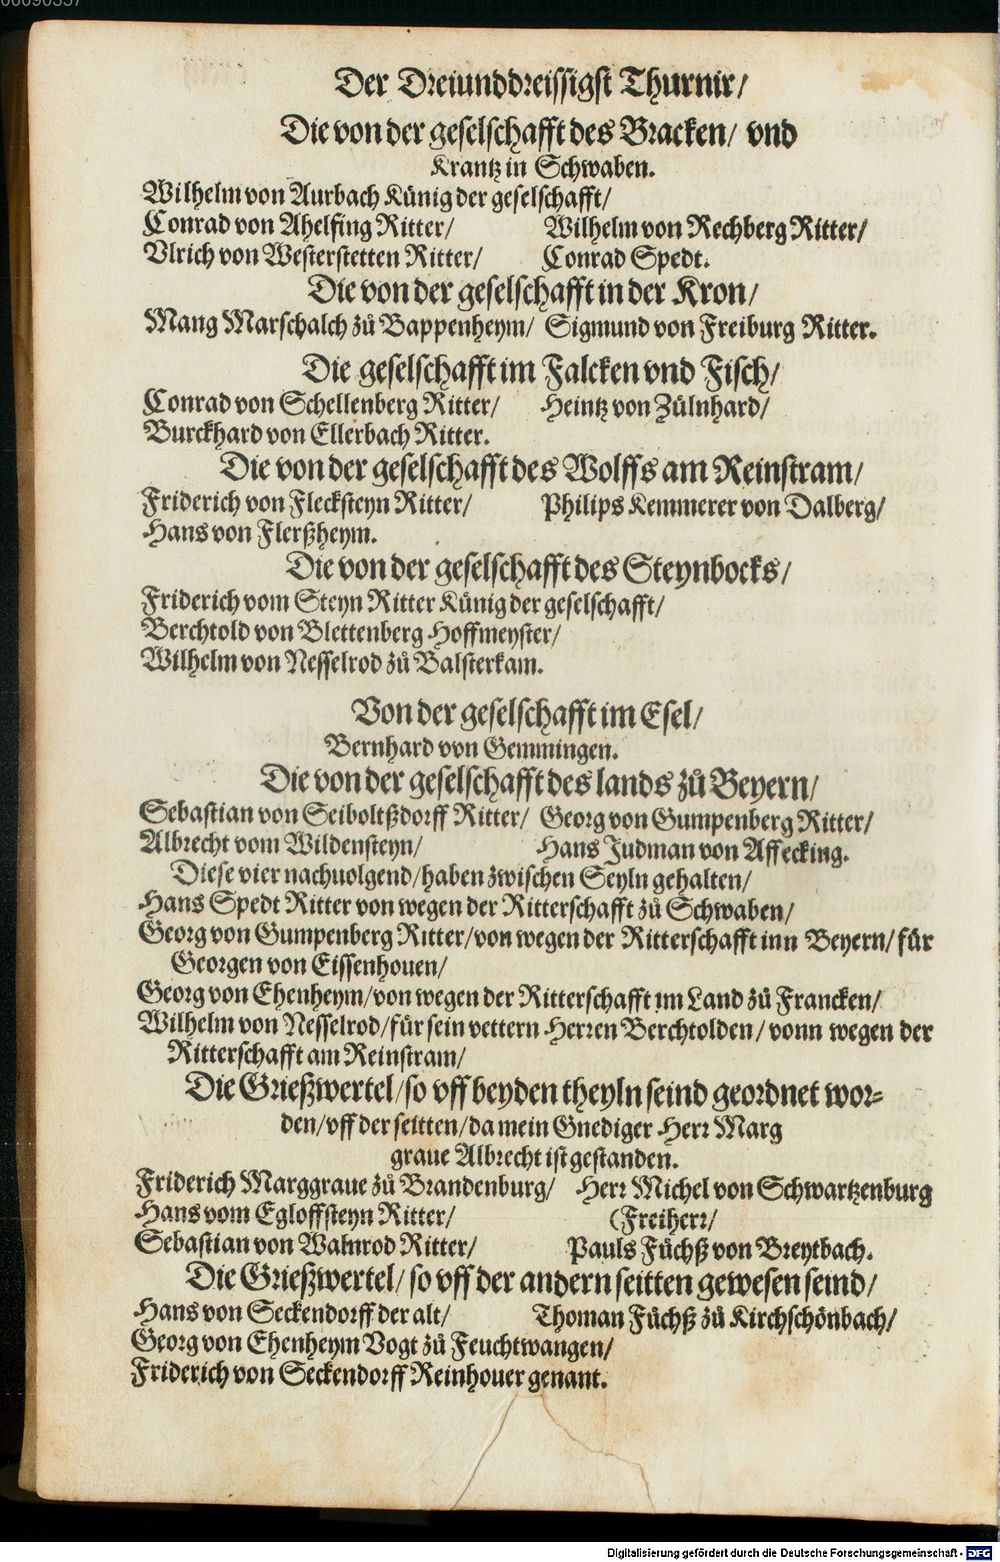 00090357
Der Dreiunddreissigst Thurnir/
Die von der geselschafft des Bracken/ vnd
Krantz in Schwaben.
Wilhelm von Aurbach Künig der geselschafft/
Conrad von Ahelfing Ritter/ Wilhelm von Rechberg Ritter/
Vlrich von Westerstetten Ritter/ Conrad Spedt.
Die von der geselschafft in der Kron/
Mang Marschalch zů Bappenheym/ Sigmund von Freiburg Ritter.
Die geselschafft im Falcken vnd Fisch/
Conrad von Schellenberg Ritter/ Heintz von Zülnhard/
Burckhard von Ellerbach Ritter.
Die von der geselschafft des Wolffs am Reinstram/
Friderich von Flecksteyn Ritter/ Philips Kemmerer von Dalberg/
Hans von Flerßheym.
Die von der geselschafft des Steynbocks/
Friderich vom Steyn Ritter Künig der geselschafft/
Berchtold von Blettenberg Hoffmeyster/
Wilhelm von Nesselrod zů Balsterkam.
Von der geselschafft im Esel/
Bernhard von Gemmingen.
Die von der geselschafft des lands zů Beyern/
Sebastian von Seiboltßdorff Ritter/ Georg von Gumpenberg Ritter/
Albrecht vom Wildensteyn/ Hans Judman von Affecking.
Diese vier nachuolgend/haben zwischen Seyln gehalten/
Hans Spedt Ritter von wegen der Ritterschafft zů Schwaben/
Georg von Gumpenberg Ritter/von wegen der Ritterschafft inn Beyern/ für
Georgen von Eissenhouen/
Georg von Ehenheym/von wegen der Ritterschafft im Land zů Francken/
Wilhelm von Nesselrod/für sein vettern Herren Berchtolden/ vonn wegen der
Ritterschafft am Reinstram/
Die Grießwertel/so vff beyden theyln seind geordnet wor-
den/vff der seitten/da mein Gnediger Herr Marg
graue Albrecht ist gestanden.
Friderich Marggraue zů Brandenburg/ Herr Michel von Schwartzenburg
Hans vom Egloffsteyn Ritter/ (Freiherr/
Sebastian von Walnrod Ritter/ Pauls Füchß von Breytbach.
Die Grießwertel/ so vff der andern seitten gewesen seind/
Hans von Seckendorff der alt/ Thoman Füchß zů Kirchschönbach/
Georg von Ehenheym Vogt zů Feuchtwangen/
Friderich von Seckendorff Reinhouer genant.
Digitalisierung gefördert durch die Deutsche Forschungsgemeinschaft - DFG